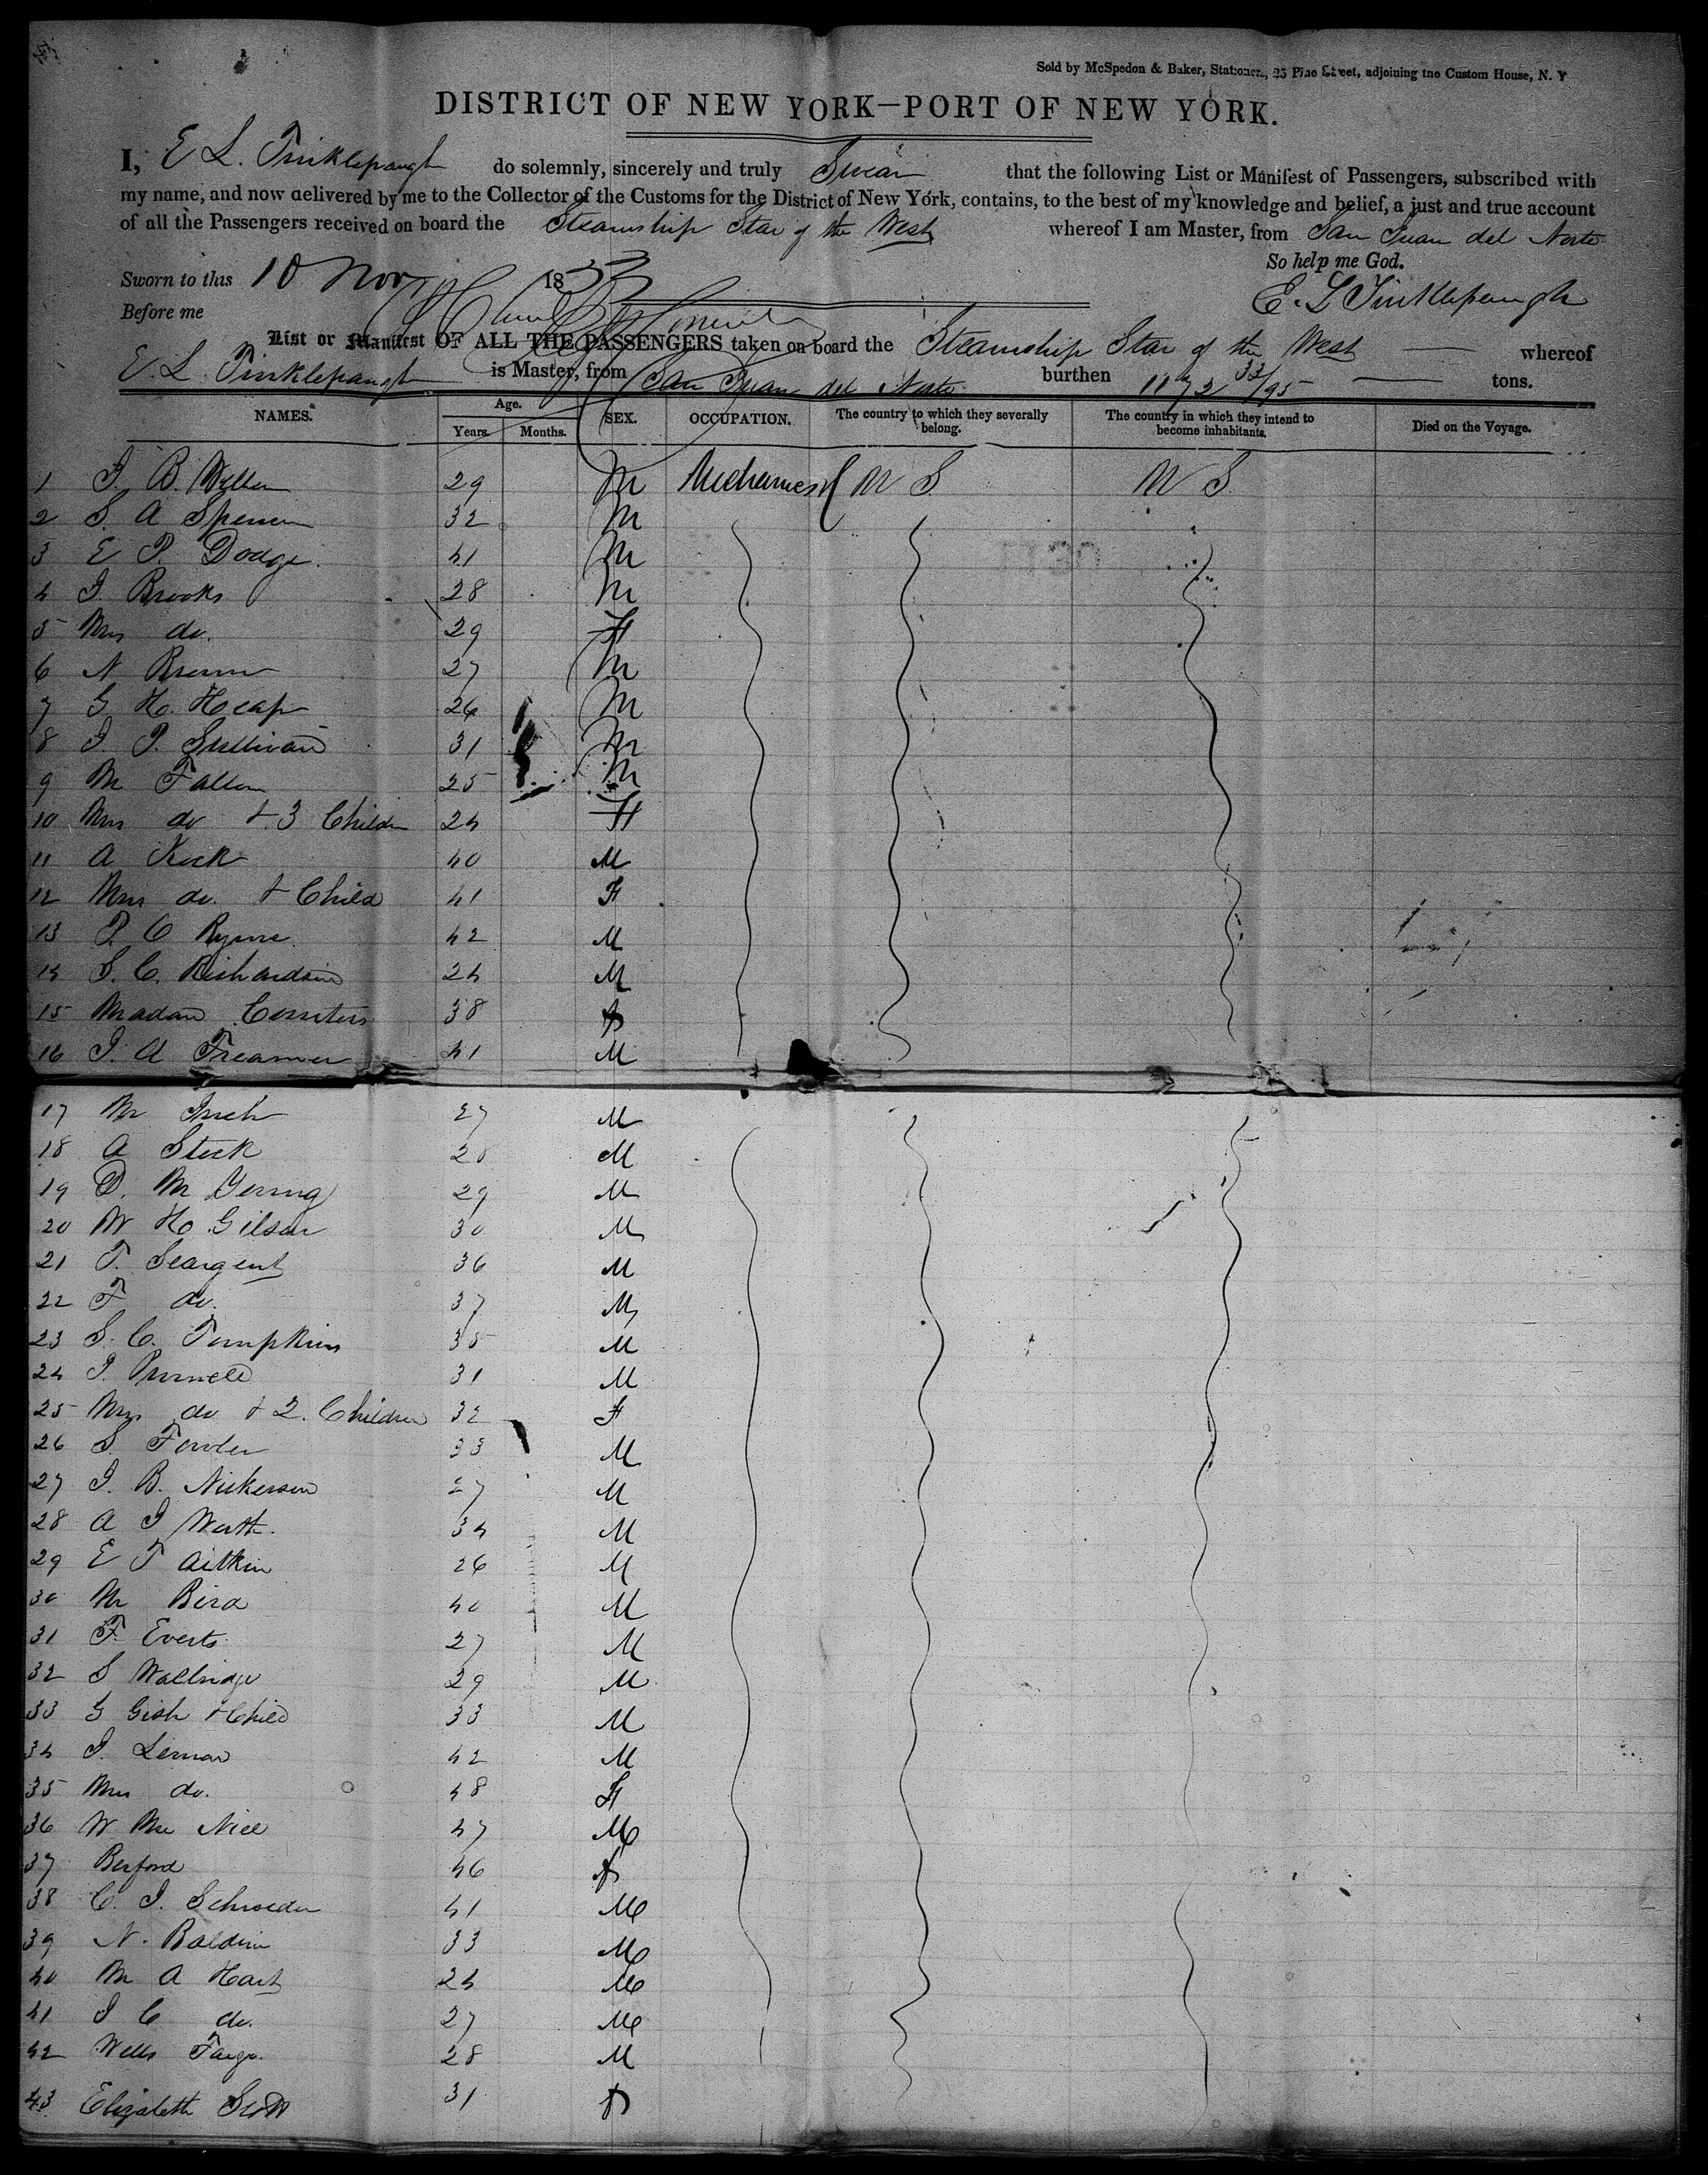 Sold by McSpedon & Baker, Stationers, 25 Pine Street, adjoining the Custom House, N. Y
DISTRICT OF NEW YORK—PORT OF NEW YORK.
I, E L. Tinklepaugh do solemnly, sincerely and truly Swear that the following List or Manifest of Passengers, subscribed with
my name, and now delivered by me to the Collector of the Customs for the District of New York, contains, to the best of my knowledge and belief, a just and true account
of all the Passengers received on board the Steamship Star of the West whereof I am Master, from San Juan del Norte
So help me God.
Sworn to this 10 Nov 1853
E. L Tinklepaugh
Before me
List or Manifest OF ALL THE PASSENGERS taken on board the Steamship Star of the West whereof
E. L. Tinklepaugh is Master, from San Juan del Norte burthen 1172 33/95 tons.
NAMES. Age. Years. Months. SEX. OCCUPATION. The country to which they severally belong. The country in which they intend to become inhabitants. Died on the Voyage.
1 J. B. 29 M Mechanics U S U S
2 S. A Spencer 32 M
3 E P. Dodge. 41 M
4 J Brooks 28 M
5 Mrs do. 29 F
6 N Brown 27 M
7 G H. Heap 26 M
8 J. P. Sullivan 31 M
9 M Fallon 25 M
10 Mrs do & 3 Children 24 F
11 A Keck 40 M
12 Mrs do. & Child 41 F
13 P C Rynne 42 M
14 S. C. Richardson 24 M
15 Madam 38 F
16 J. A Freamer 41 M
17 Mr 27 M
18 A Steck 28 M
19 D. M 29 M
20 W H Gilson 30 M
21 T. Seargent 36 M
22 F do. 37 M
23 S. C. Tompkins 35 M
24 J. Purnell 31 M
25 Mrs do & 2. Children 32 F
26 S. Fowler 33 M
27 J. B. Nickerson 27 M
28 A J Worth. 34 M
29 E T Aitkin 26 M
30 Mr Bird 40 M
31 F. Everts 27 M
32 S Wallridge 29 M
33 G Gish & Child 33 M
34 J. Lemon 42 M
35 Mrs do. 48 F
36 W Mc Niel 47 M
37 Berford 46 F
38 C. J. Schroeder 41 M
39 N. Baldwin 33 M
40 M A Hart 24 M
41 J C do. 27 M
42 Wells Fargo. 28 M
43 Elizabeth Scott 31 F